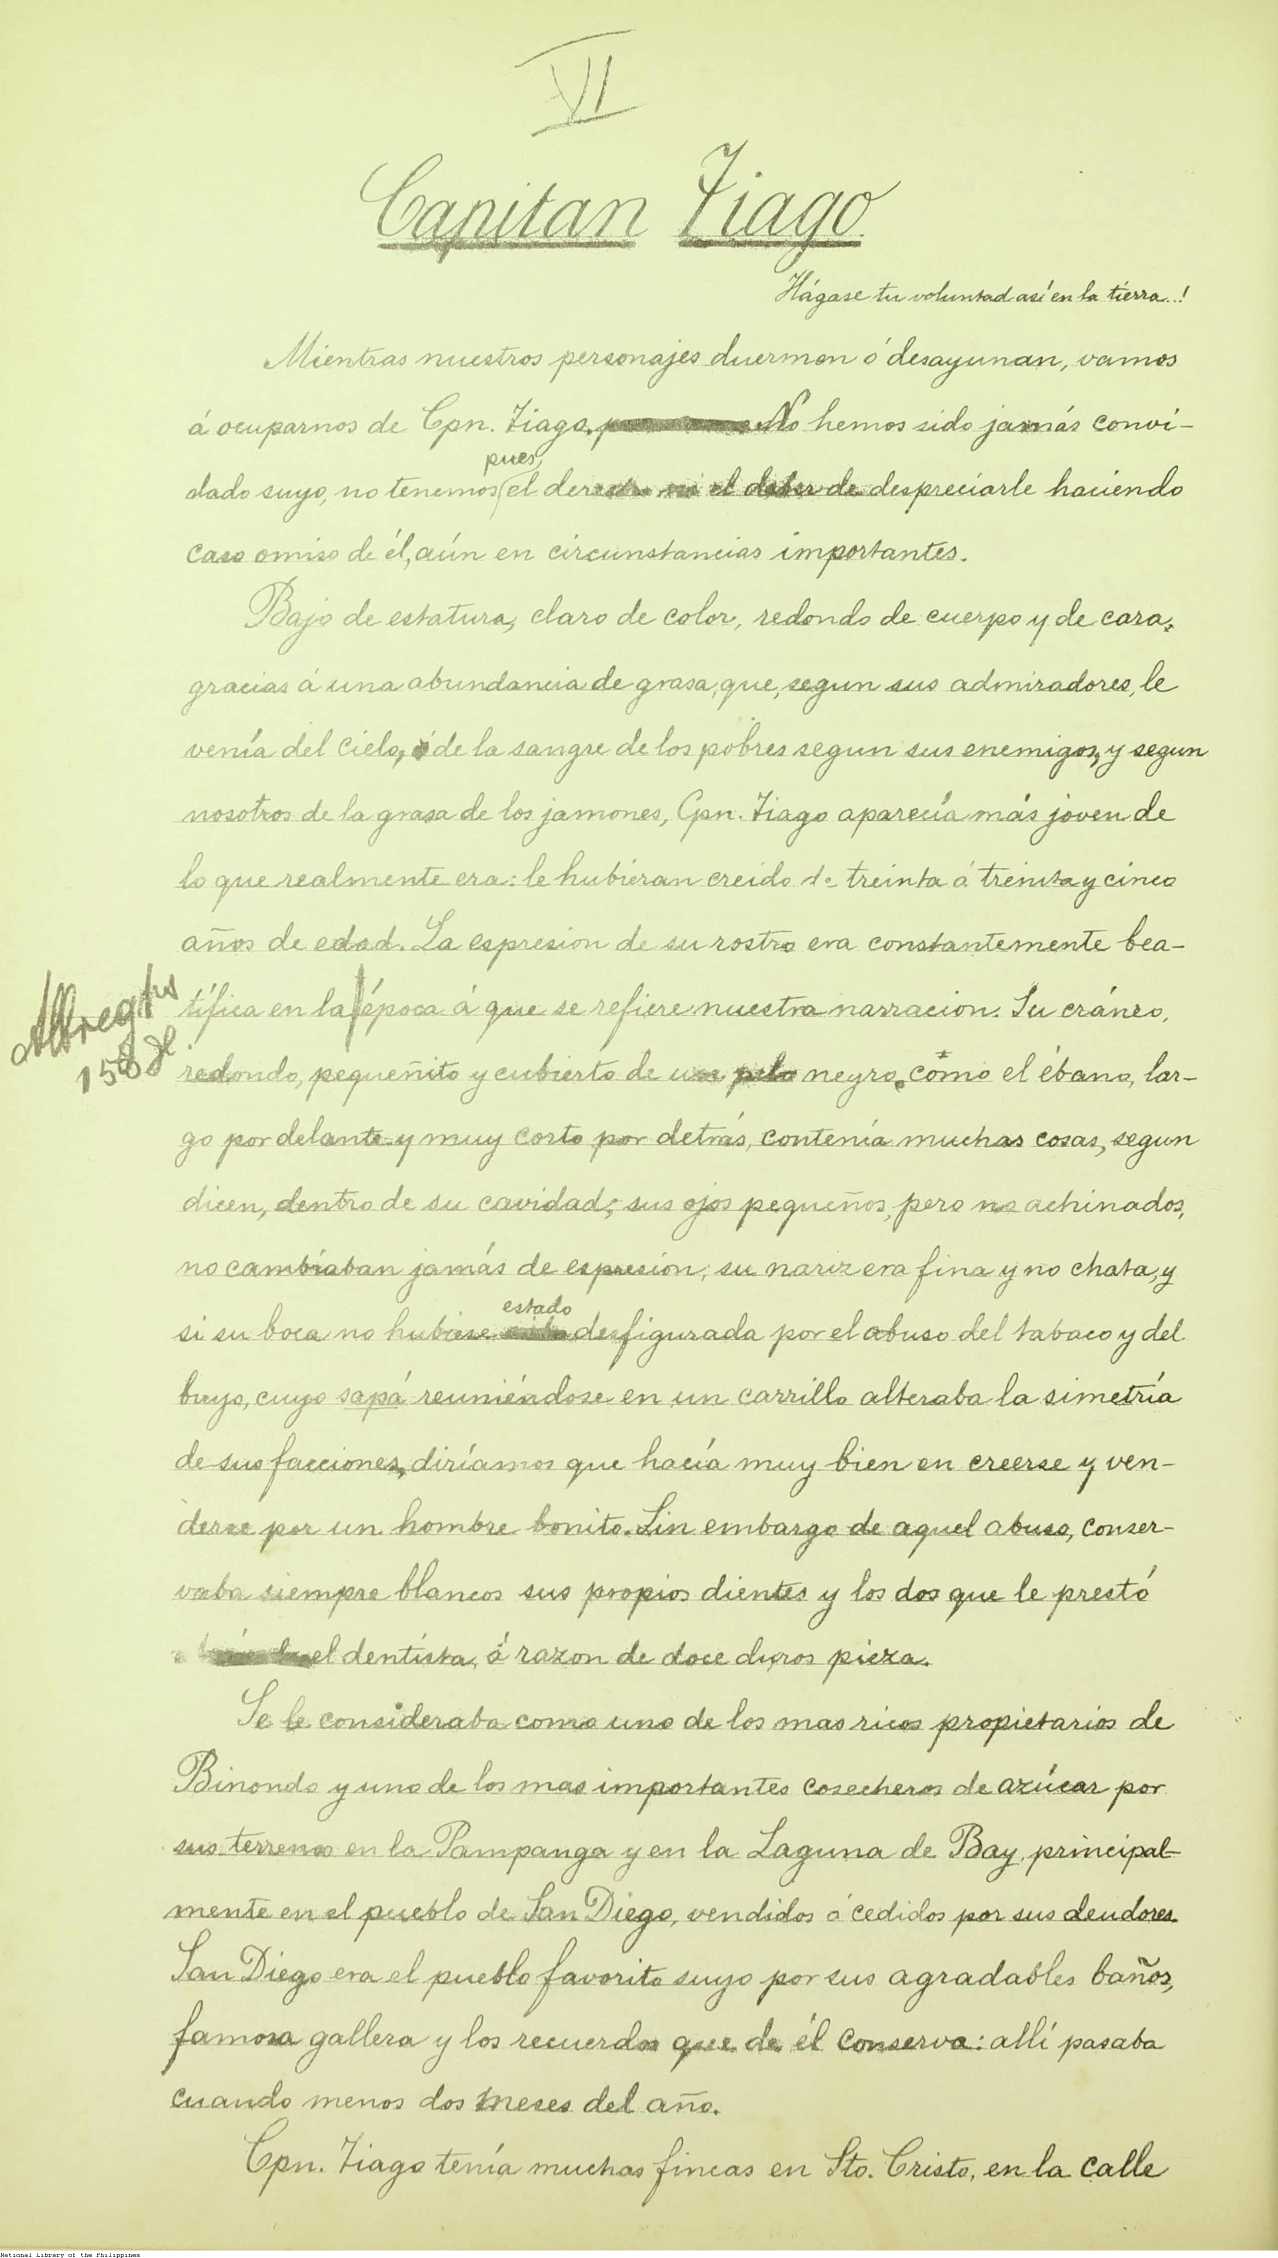 VI
Capitan Tiago
Hágase tu voluntad así en la tierra..!
Mientras nuestros personajes duermen ó desayunan, vamos
á ocuparnos de Cpn. Tiago. No hemos sido jamás convi-
pues,
dado suyo, no tenemos el derecho ni el deber de despreciarle haciendo
caso omiso de él, aún en circunstancias importantes.
Bajo de estatura, claro de color, redondo de cuerpo y de cara,
gracias á una abundancia de grasa, que, segun sus admiradores, le
venía del cielo, de la sangre de los pobres segun sus enemigos, y segun
nosotros de la grasa de los jamones, Cpn. Tiago aparecía más joven de
lo que realmente era: le hubieran creido de treinta á treinta y cinco
años de edad. La espresion de su rostro era constantemente bea-
tífica en la época á que se refiere nuestra narracion. Su cráneo,
redondo, pequeñito y cubierto de un pelo negro como el ébano, lar-
go por delante y muy corto por detrás, contenía muchas cosas, segun
dicen, dentro de su cavidad; sus ojos pequeños, pero no achinados,
no cambiaban jamás de espresion; su nariz era fina y no chata, y
estado
si su boca no hubiese desfigurada por el abuso del tabaco y del
buyo, cuyo sapá reuniéndose en un carrillo alteraba la simetría
de sus facciones, diríamos que hacía muy bien en creerse y ven-
derse por un hombre bonito. Sin embargo de aquel abuso, conser-
vaba siempre blancos sus propios dientes y los dos que le prestó
el dentista, á razon de doce duros pieza.
Se le consideraba como uno de los mas ricos propietarios de
Binondo y uno de los mas importantes cosecheros de azúcar por
sus terrenos en la Pampanga y en la Laguna de Bay, principal-
mente en el pueblo de San Diego, vendidos ó cedidos por sus deudores.
San Diego era el pueblo favorito suyo por sus agradables baños,
famosa gallera y los recuerdos que de él conserva: allí pasaba
cuando menos dos meses del año.
Cpn. Tiago tenía muchas fincas en Sto. Cristo, en la calle
158
National Library of the Philippines